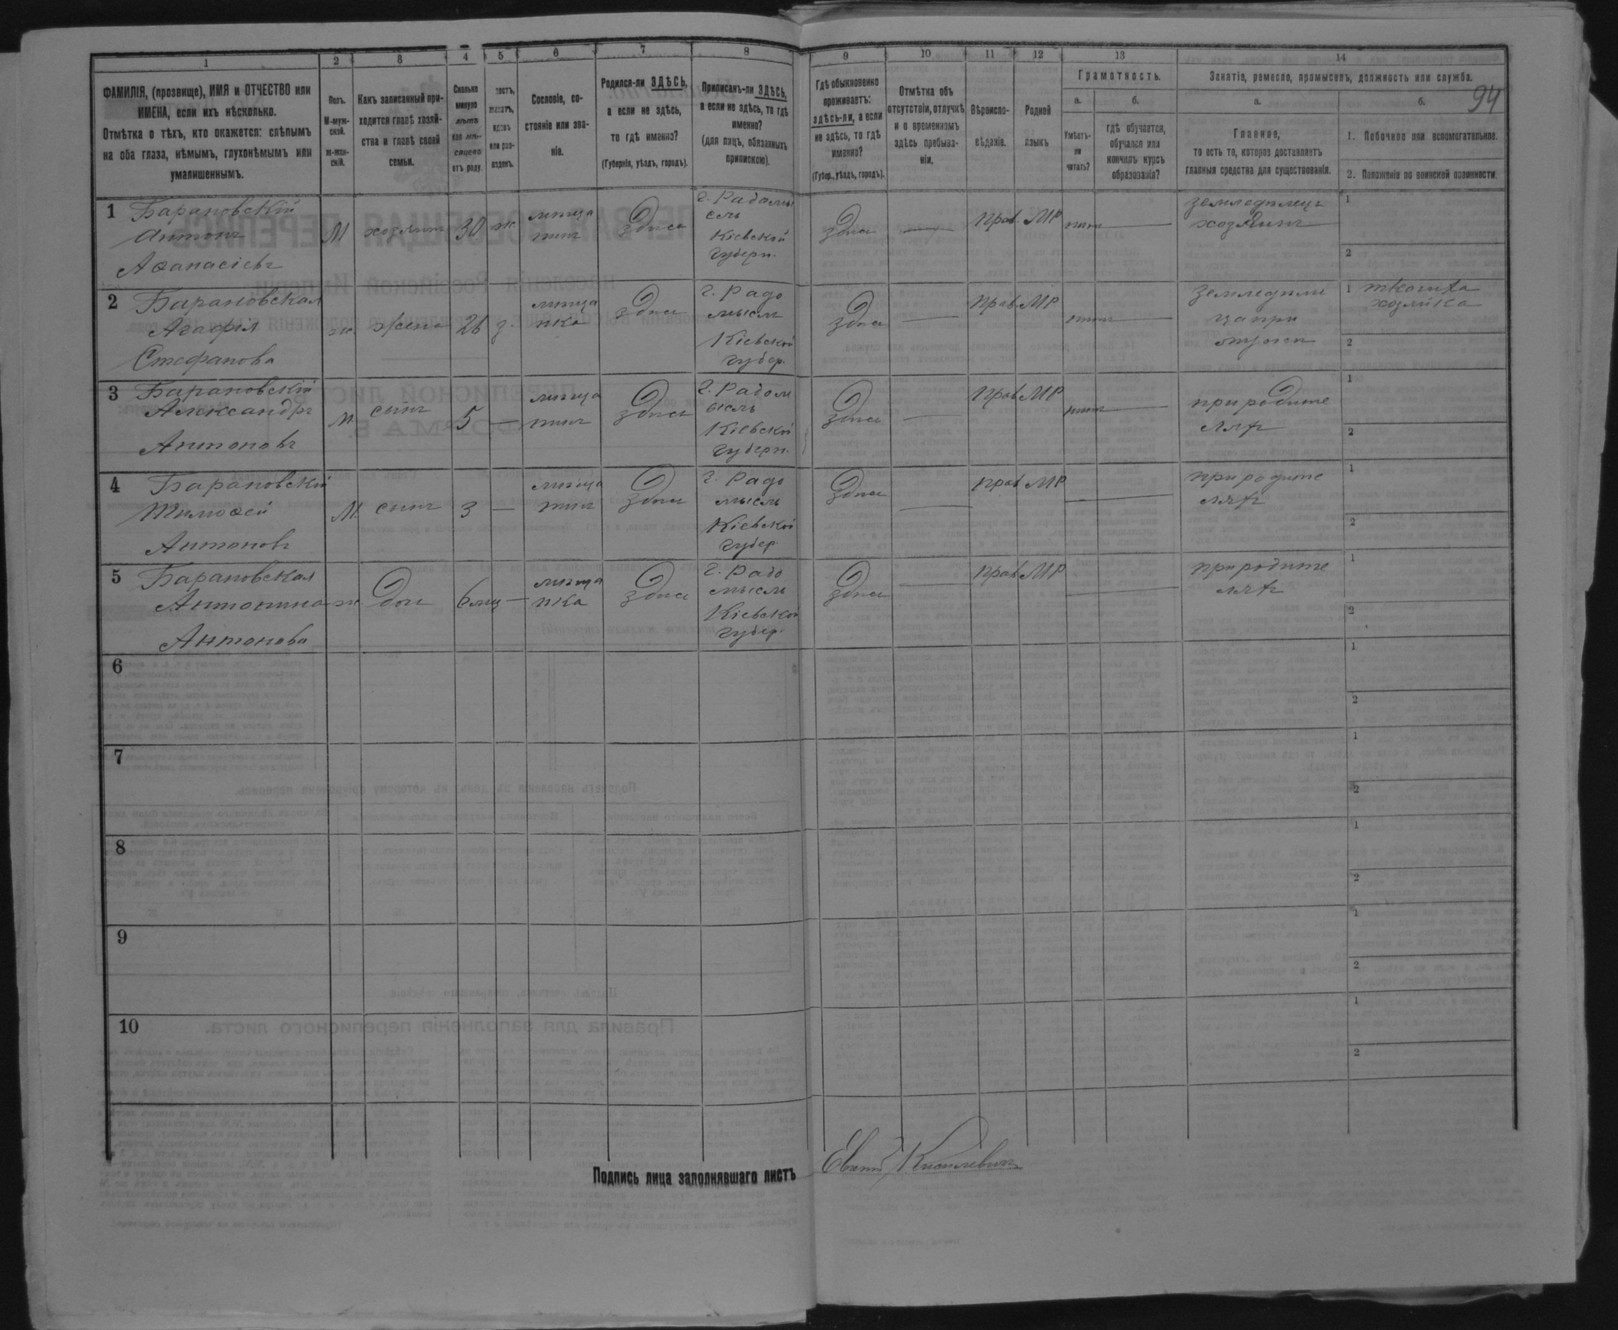 94
1 2 3 4 5 6 7 8 9 10 11 12 13 14
ФАМИЛІЯ, (прозвище), ИМЯ и ОТЧЕСТВО или
ИМЕНА, если ихъ нѣсколько.
Отмѣтка о тѣхъ, кто окажется: слѣпымъ
на оба глаза, нѣмымъ, глухонѣмымъ или
умалишеннымъ.
Полъ.
М-муж-
ской.
Ж-жен-
скій.
Какъ записанный при-
ходится главѣ хозяй-
ства и главѣ своей
семьи.
Сколько
минуло
лѣтъ
отъ роду.
Сословіе, со-
стояніе или зва-
ніе.
Родился-ли ЗДѢСЬ,
а если не здѣсь,
то гдѣ именно?
(Губернія, уѣздъ, городъ).
Приписанъ-ли ЗДѢСЬ,
а если не здѣсь, то гдѣ
именно?
(для лицъ, обязанныхъ
припискою).
Гдѣ обыкновенно
проживаетъ:
здѣсь-ли, а если
не здѣсь, то гдѣ
именно?
(Губер., уѣздъ, городъ).
Отмѣтка объ
отсутствіи, отлучкѣ
и о временномъ
здѣсь пребыва-
ніи.
Вѣроиспо-
вѣданіе.
Родной
языкъ
Грамотность.
а.
Умѣетъ-
ли
читать?
б.
гдѣ обучается,
обучался или
кончилъ курсъ
образованія?
Занятіе, ремесло, промыселъ, должность или служба.
а.
Главное,
то есть то, которое доставляетъ
главныя средства для существованія.
б.
1. Побочное или вспомогательное.
2. Положеніе по воинской повинности
1 Барановскій
Антонъ
Аѳанасіевъ
М хозяинъ 30 ж
Здѣсь
г. Радомы
сль
Кіевской
Губерн.
Здѣсь — Прав МР нѣтъ —
земледѣлецъ
хозяинъ
1
2
2 Барановская
Агафія
Стефанова
ж жена 26 з.
Здѣсь
г. Радо
мысль
Кіевской
Губер.
Здѣсь — Прав МР нѣтъ —
1 ткачиха
хозяйка
2
3 Барановскій
Александръ
Антоновъ
м сынъ 5 —
Здѣсь
г. Радом
ысль
Кіевской
Губерн.
Здѣсь — Прав МР нѣтъ —
при родите
ляхъ
1
2
4 Барановскій
Тимоѳей
Антоновъ
М. сынъ 3 —
Здѣсь
г. Радо
мысль
Кіевской
Губер
Здѣсь — Прав МР —
при родите
ляхъ
1
2
5 Барановская
Антонина
Антонова
ж Доч 6 мц —
Здѣсь
г. Радо
мысль
Кіевской
Губер.
Здѣсь — Прав МР —
при родите
ляхъ
1
2
6
1
2
7
1
2
8
1
2
9
1
2
10
1
2
Подпись лица заполнявшаго листъ